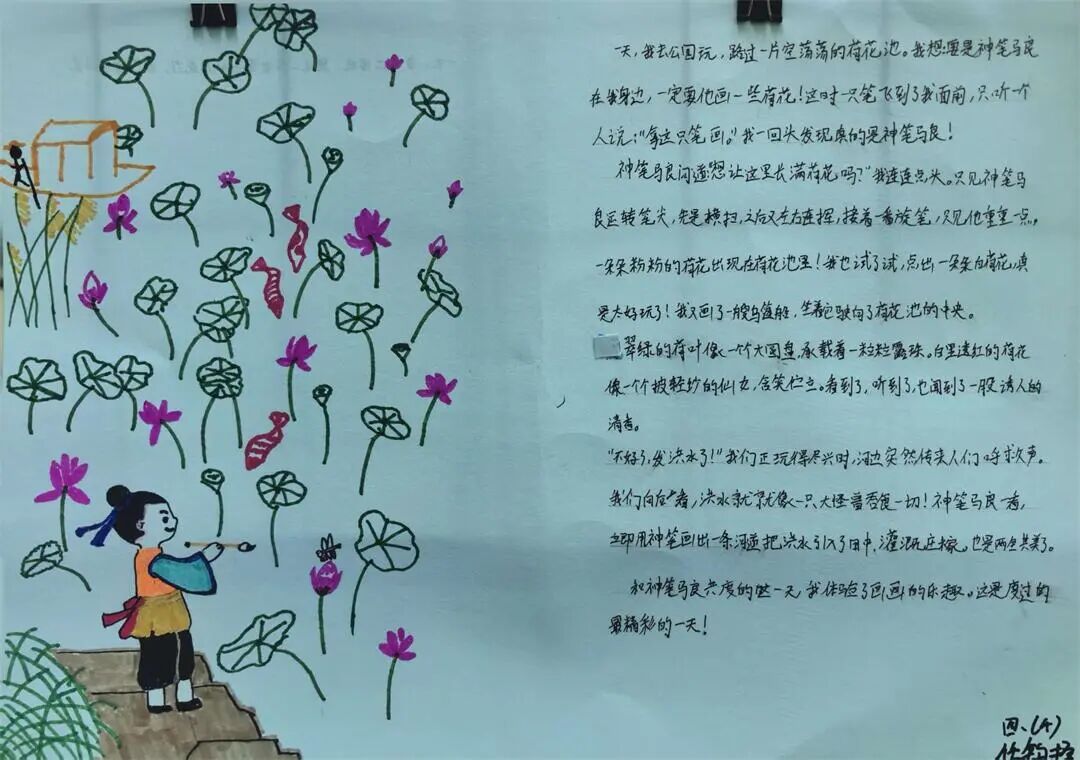 一天，我去公园玩，路过一片空荡荡的荷花池。我想要是神笔马良
在我身边，一定要他画一些荷花！这时一只笔飞到了我面前，只听一个
人说：“拿这只笔画。”我一回头发现真的是神笔马良！
神笔马良问道“想让这里长满荷花吗？”我连连点头。只见神笔马
良运转笔尖，先是横扫，之后又左右连挥，接着一番旋笔，只见他重重一点。
一朵朵粉粉的荷花出现在荷花池里！我也试了试，点出一朵朵白荷花，真
是太好玩了！我又画了一艘乌篷船，坐着它驶向了荷花池的中央。
翠绿的荷叶像一个大圆盘，承载着一粒粒露珠。白里透红的荷花
像一个个披轻纱的仙女，含笑伫立。看到了，听到了，也闻到了一股诱人的
清香。
“不好了，发洪水了！”我们正玩得尽兴时，河边突然传来人们呼求声。
我们向后看，洪水就像一只大怪兽吞食一切！神笔马良一看，
立即用神笔画出一条河道把洪水引入了田中，灌溉庄稼。也是两全其美了。
和神笔马良共度的这一天，我体验了画画的乐趣。这是度过的
最精彩的一天！
四、(4)